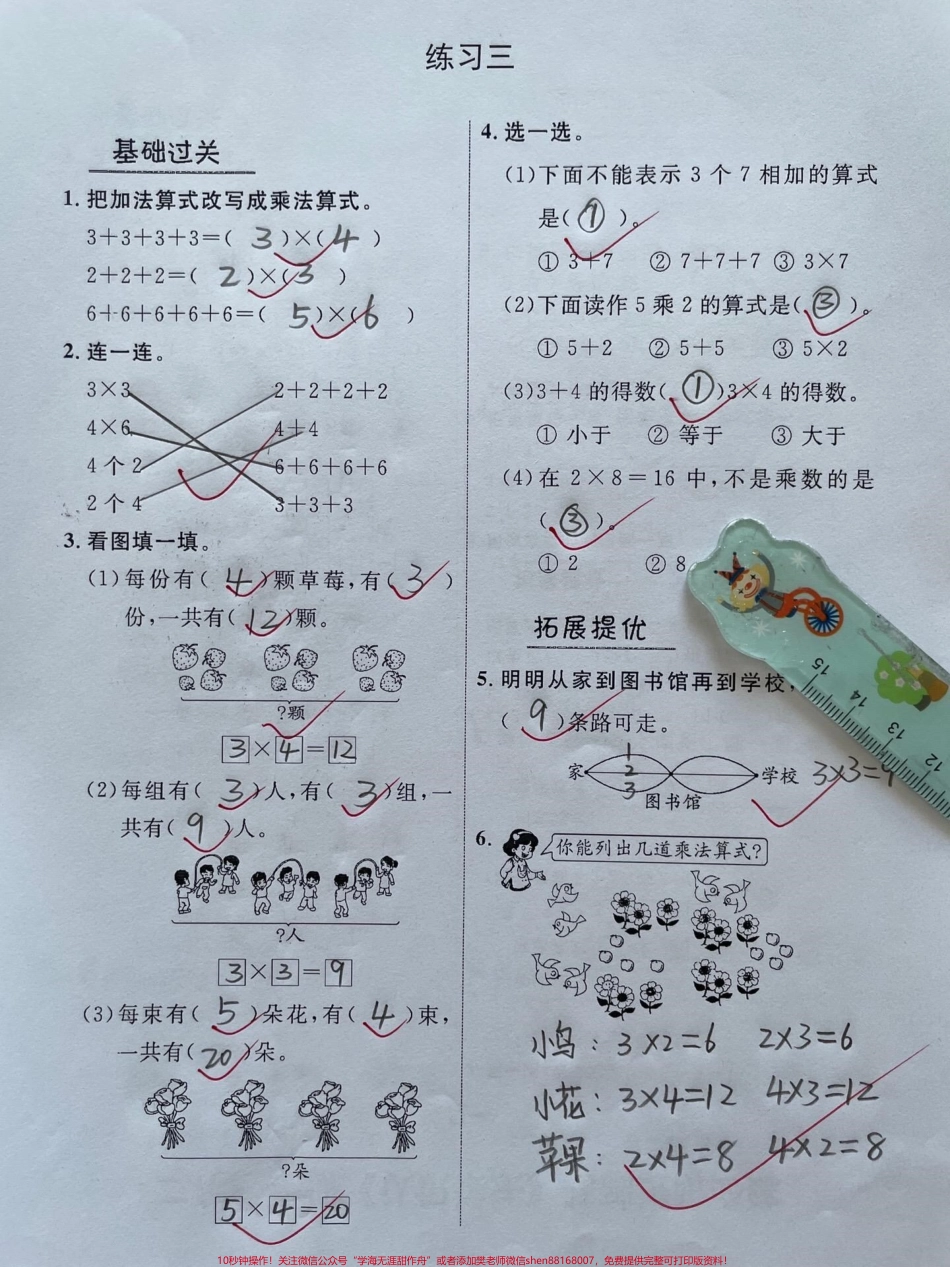 练习三
基础过关
1. 把加法算式改写成乘法算式。
3+3+3+3=( 3 )×( 4 )
2+2+2=( 2 )×( 3 )
6+6+6+6+6=( 5 )×( 6 )
2. 连一连。
3×3 2+2+2+2
4×6 4+4
4个2 6+6+6+6
2个4 3+3+3
3. 看图填一填。
(1)每份有( 4 )颗草莓,有( 3 )
份,一共有( 12 )颗。
?颗
3×4=12
(2)每组有( 3 )人,有( 3 )组,一
共有( 9 )人。
?人
3×3=9
(3)每束有( 5 )朵花,有( 4 )束,
一共有( 20 )朵。
?朵
5×4=20
4. 选一选。
(1)下面不能表示3个7相加的算式
是( ① )。
① 3+7 ② 7+7+7 ③ 3×7
(2)下面读作5乘2的算式是( ③ )。
① 5+2 ② 5+5 ③ 5×2
(3)3+4的得数( ① )3×4的得数。
① 小于 ② 等于 ③ 大于
(4)在2×8=16中,不是乘数的是
( ③ )。
① 2 ② 8
拓展提优
5. 明明从家到图书馆再到学校,
( 9 )条路可走。
1
家 2 学校 3×3=9
3
图书馆
6. 你能列出几道乘法算式?
小鸟: 3×2=6 2×3=6
小花: 3×4=12 4×3=12
苹果: 2×4=8 4×2=8
15 14 13 12
10秒钟操作！关注微信公众号“学海无涯甜作舟”或者添加樊老师微信shen88168007，免费提供完整可打印版资料！